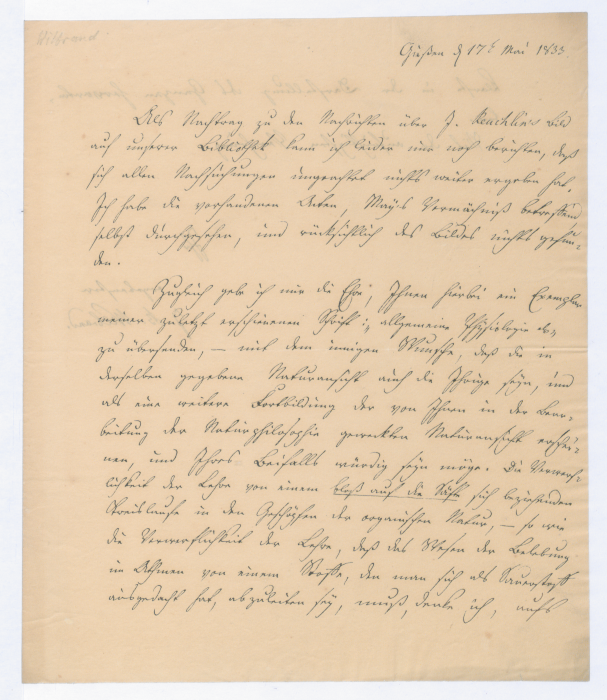 Wilbrand
Gießen d 17t Mai 1833.
Als Nachtrag zu den Nachrichten über J. Reuchlin's Bild
auf unserer Bibliothek kann ich leider nur noch berichten, daß
sich allen Nachsuchungen ungeachtet nichts weiter ergeben hat.
Ich habe die vorhandenen Akten, May's Vermächniß betreffend
selbst durchgesehen, und rücksichtlich des Bildes nichts gefun-
den.
Zugleich gebe ich mir die Ehre, Ihnen hierbei ein Exemplar
meiner zuletzt erschienenen Schrift: "allgemeine Physiologie
zu übersenden, – mit dem innigen Wunsche, daß die in
derselben gegebene Naturansicht auch die Ihrige seyn, und
als eine weitere Fortbildung der von Ihnen in der Bear-
beitung der Naturphilosophie geweckten Naturansicht erschei-
nen, und Ihres Beifalls würdig seyn möge. Die Verwerf-
lichkeit der Lehre von einem bloß auf die Säfte sich beziehenden
Kreislaufe in den Geschöpfen der organischen Natur, – so wie
die Verwerflichkeit der Lehre, daß das Wesen der Belebung
im Athmen von einem Stoffe, den man sich als Sauerstoff
ausgedacht hat, abzuleiten sey, muß, denke ich, aufs